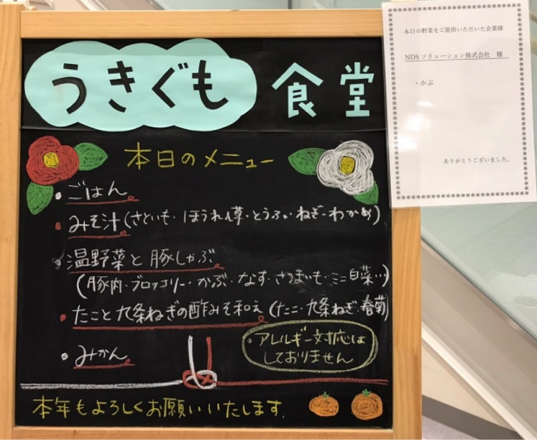 うきぐも 食堂
本日のメニュー
・ごはん
・みそ汁(さといも・ほうれん草・とうふ・ねぎ・わかめ)
・温野菜と豚しゃぶ
(豚肉・ブロッコリー・かぶ・なす・さつまいも・ミニ白菜…)
・たこと九条ねぎの酢みそ和え(たこ・九条ねぎ・春菊)
・みかん
・アレルギー対応は
しておりません
本年もよろしくお願いいたします.
本日の野菜をご提供いただいた企業様
NDSソリューション株式会社 様
・かぶ
ありがとうございました。